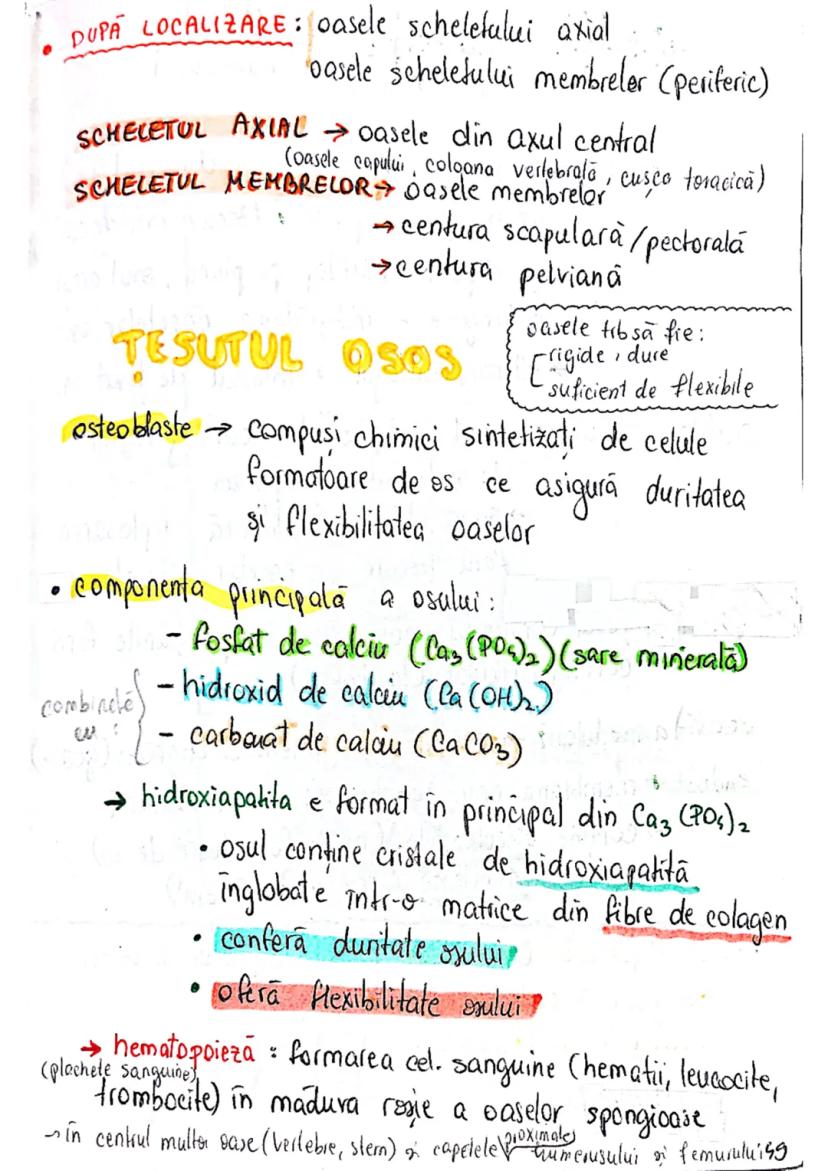 • DUPĂ LOCALIZARE: oasele scheletului axial
oasele scheletului membrelor (periferic)
SCHELETUL AXIAL → oasele din axul central
(oasele capului, coloana vertebrală, cușca toracică)
SCHELETUL MEMBRELOR → oasele membrelor
→ centura scapulară/pectorală
→ centura pelviană
ȚESUTUL OSOS
oasele trb să fie:
rigide, dure
suficient de flexibile
osteoblaste → compuși chimici sintetizați de celule
formatoare de os ce asigură duritatea
și flexibilitatea oaselor
• componenta principală a osului:
- fosfat de calciu (Ca3(PO4)2) (sare minerală)
combinate
cu:
- hidroxid de calciu (Ca(OH)2)
- carbonat de calciu (CaCO3)
→ hidroxiapatita e format în principal din Ca3(PO4)2
• osul conține cristale de hidroxiapatită
înglobate într-o matrice din fibre de colagen
• conferă duritate osului
• oferă flexibilitate osului
→ hematopoieză: formarea cel. sanguine (hematii, leucocite,
(plachete sanguine)
trombocite) în măduva roșie a oaselor spongioase
→ în centrul multor oase (vertebre, stern) și capetele proximale humerusului și femurului 59